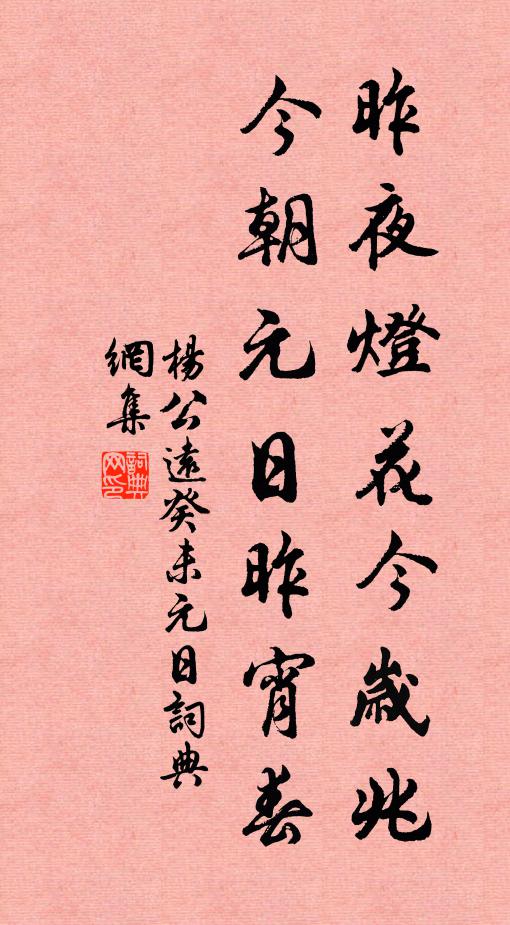 昨夜燈花今歲兆
今朝元日昨宵春
楊公遠癸未元日詞典
網集
詞典
网印